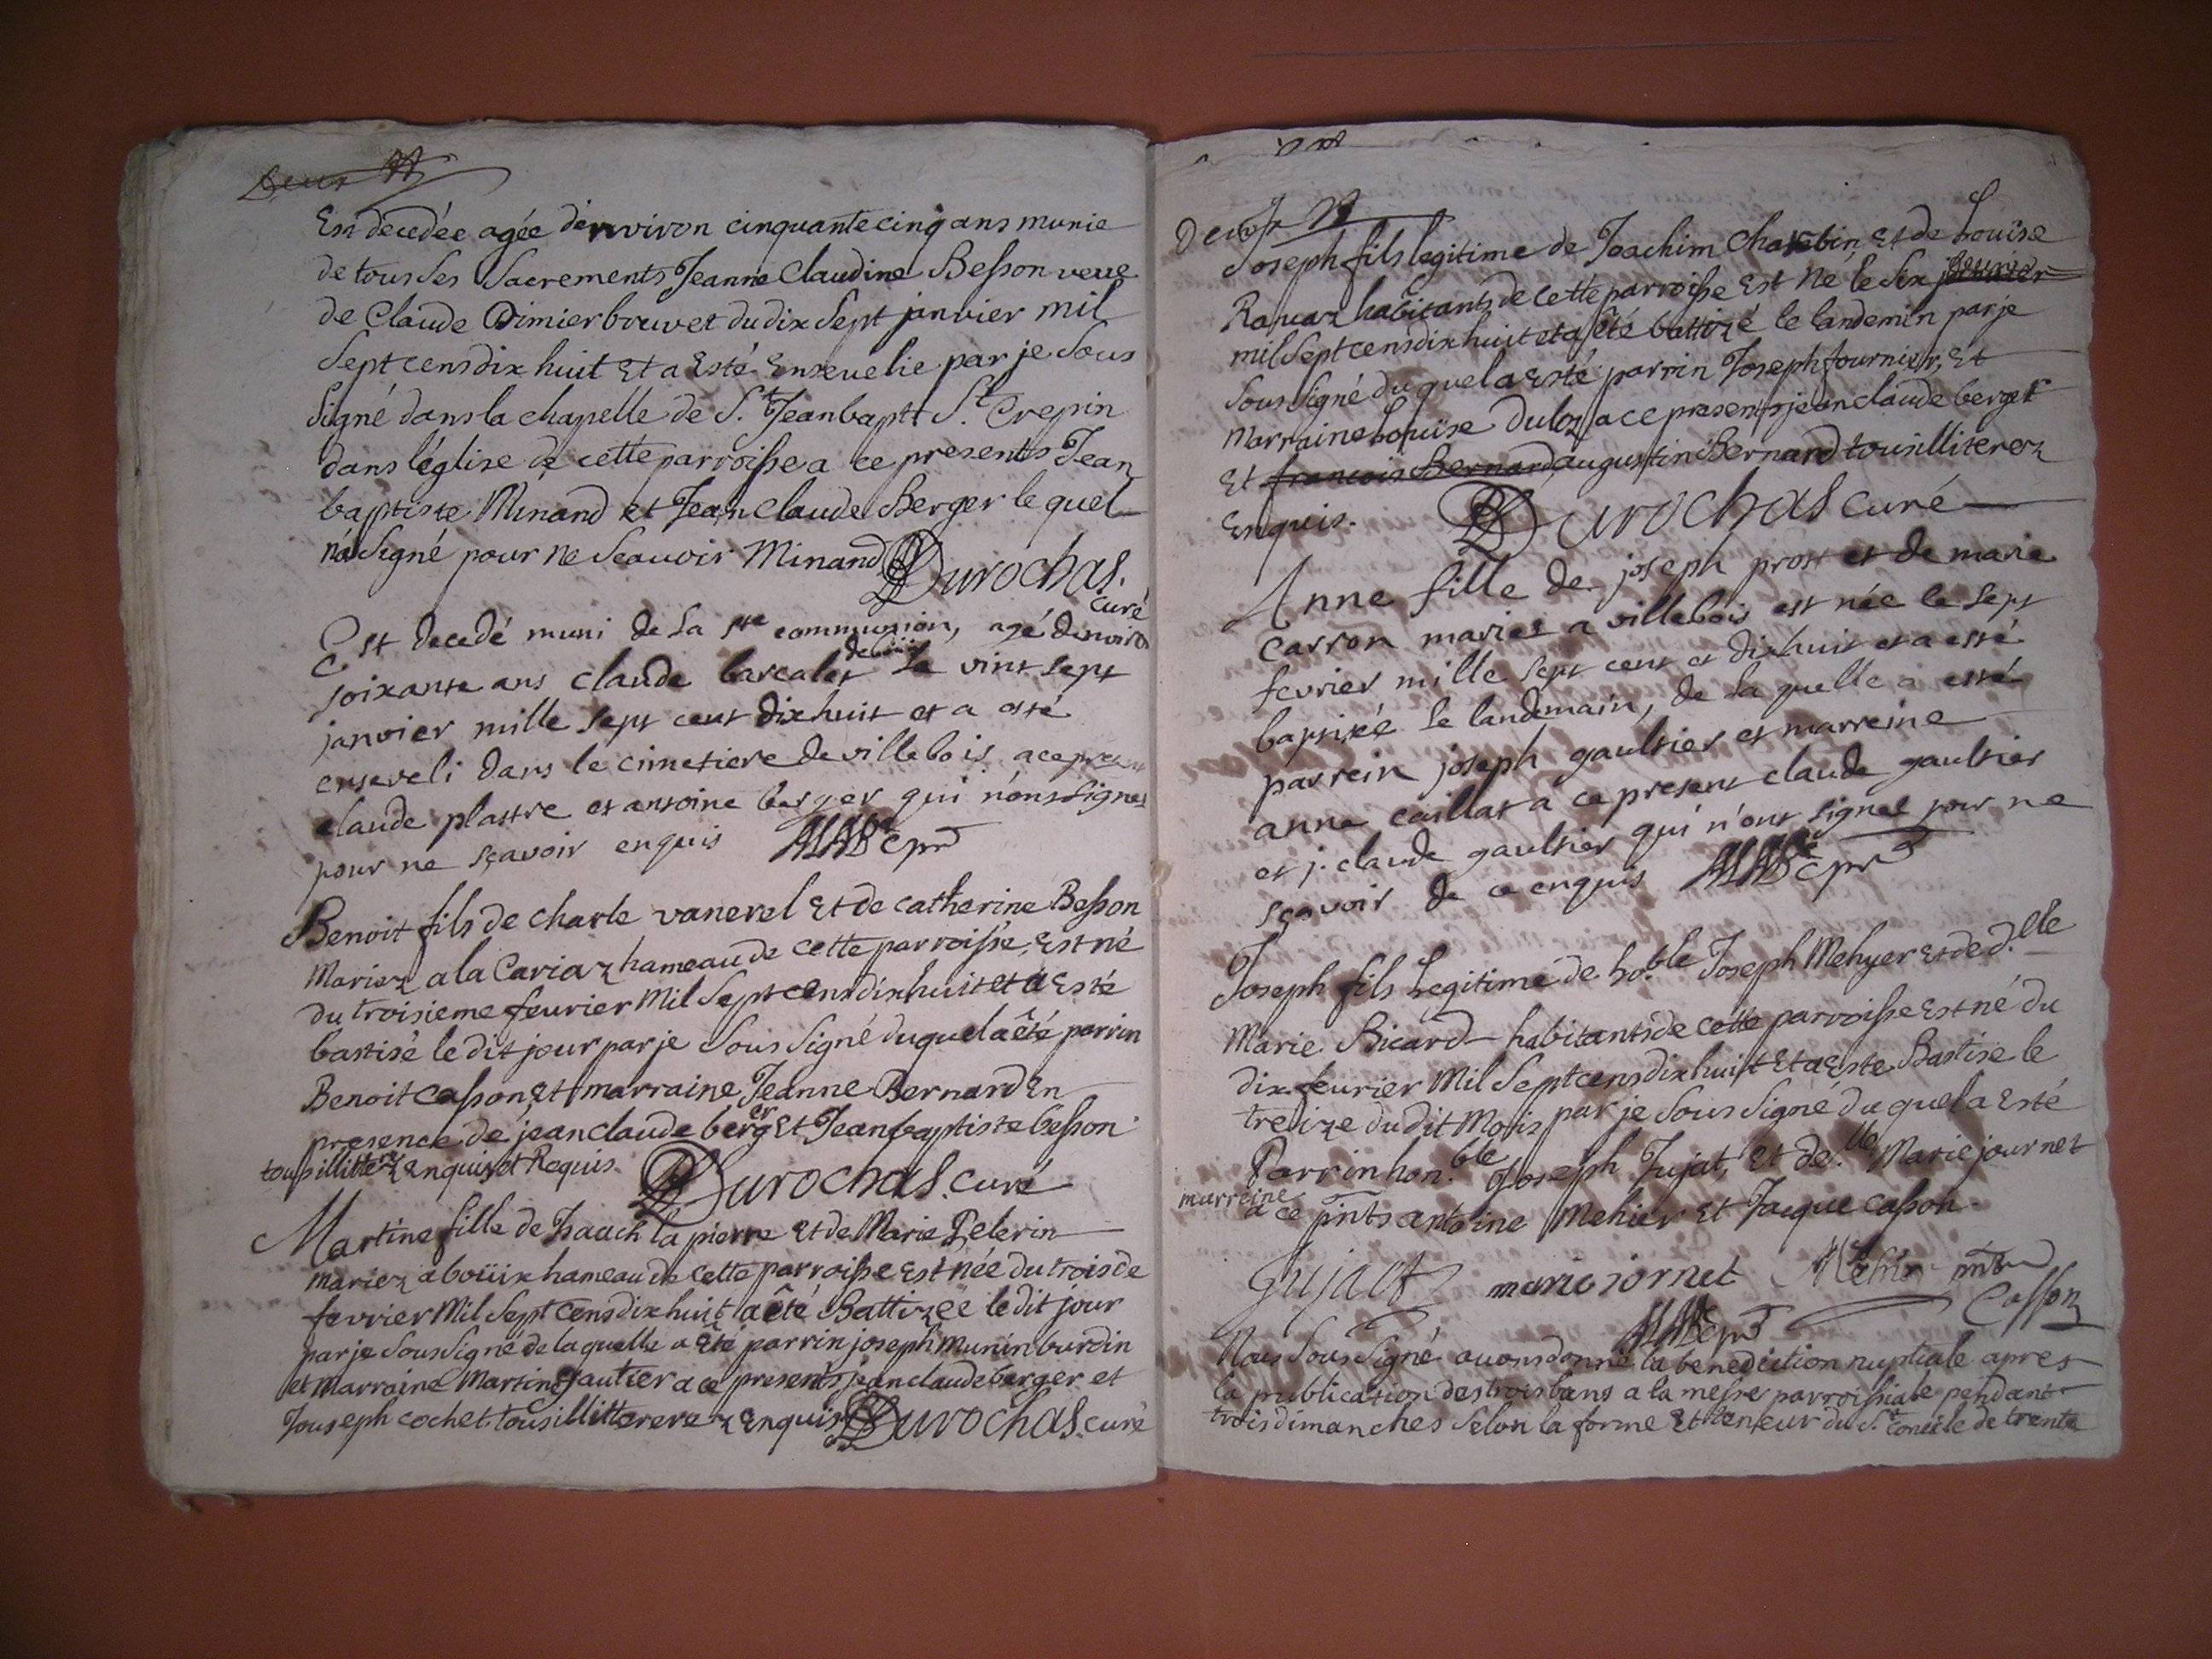 Deux
Est decedée agée d'environ cinquante cinq ans munie
de tous ses Sacrements Jeanne Claudine Besson veuve
de Claude Dimier bouvet du dix Sept janvier mil
Sept cens dix huit Et a Esté Ensevelie par je Sous
Signé dans la chapelle de S.t Jean baptt S.t Crepin
dans l'église de cette parroisse a ce presents Jean
baptiste Minand et Jean Claude Berger le quel
n'a Signé pour ne Scauvoir Minand Durochas.
curé
Est decedé muni de la ste communion, agé denviron
soixante ans claude barcalet le vint sept
janvier mille sept cent dixhuit et a esté
enseveli dans le cimetiere de villebois a ce present
claude plastre et antoine berger qui n'ont signes
pour ne sçavoir enquis
Benoit fils de charle vanerel Et de catherine Besson
Mariez a la Cariaz hameau de cette parroisse, Est né
du troisieme feurier Mil Sept cens dix huit et a Esté
bastisé le dit jour par je Sous Signé du quel a êté parrin
Benoit Casson, Et marraine Jeanne Bernard En
presence de jean claude berger Et Jean baptiste besson
tous illitterez Enquis et Requis. Durochas. curé
Martine fille de Isaach la pierre Et de Marie Pelerin
mariez a boüix hameau de cette parroisse Est née du trois de
fevrier Mil Sept cens dix huit a êté Battizée le dit jour
par je Sous Signé de la quelle a Eté parrin joseph munin burdin
et Marraine Martine gautier a ce presents jean claude berger et
Jouseph cochet tous illitterere z Enquis Durochas. curé
Deux
Joseph fils legitime de Joachim Charbin, Et de Louise
Ravaz habitants de cette parroisse Est Né le six feurier
mil Sept cens dix huit et a êté battizé le landemin par je
Sous Signé du quel a Esté parrin Joseph fournier, Et
Marraine Louise duloz a ce presents jean claude berger
Et francois Bernard, augustin Bernard tous illiterez
Enquis. Durochas curé
Anne fille de joseph prost et de marie
carron mariez a villebois est née le sept
fevrier mille sept cent et dixhuit et a esté
baptisée le landemain, de la quelle a esté
parrein joseph gaultier et marreine
anne caillat a ce present claude gaultier
et j. claude gaultier qui n'ont signes pour ne
sçavoir de ce enquis
Joseph fils Legitime de ho.ble Joseph Mehyer et de d.lle
Marie Bicard habitants de cette parroisse Est né du
dix feurier Mil Sept cens dix huit Et a Esté Bastisé le
treize du dit Mois par je Sous Signé du quel a Esté
Parrin hon.ble Joseph Jujat, Et de.lle Marie journet
marreine
a ce pints antoine Mehier Et Jacque casson.
Gujact marie jornet Mehier pnt
Casson
Nous Sous Signé auons donné la benediction nuptiale apres
la publication des trois bans a la messe parroissiale pendant
trois dimanches Selon la forme Et teneur du S.t concile de trente